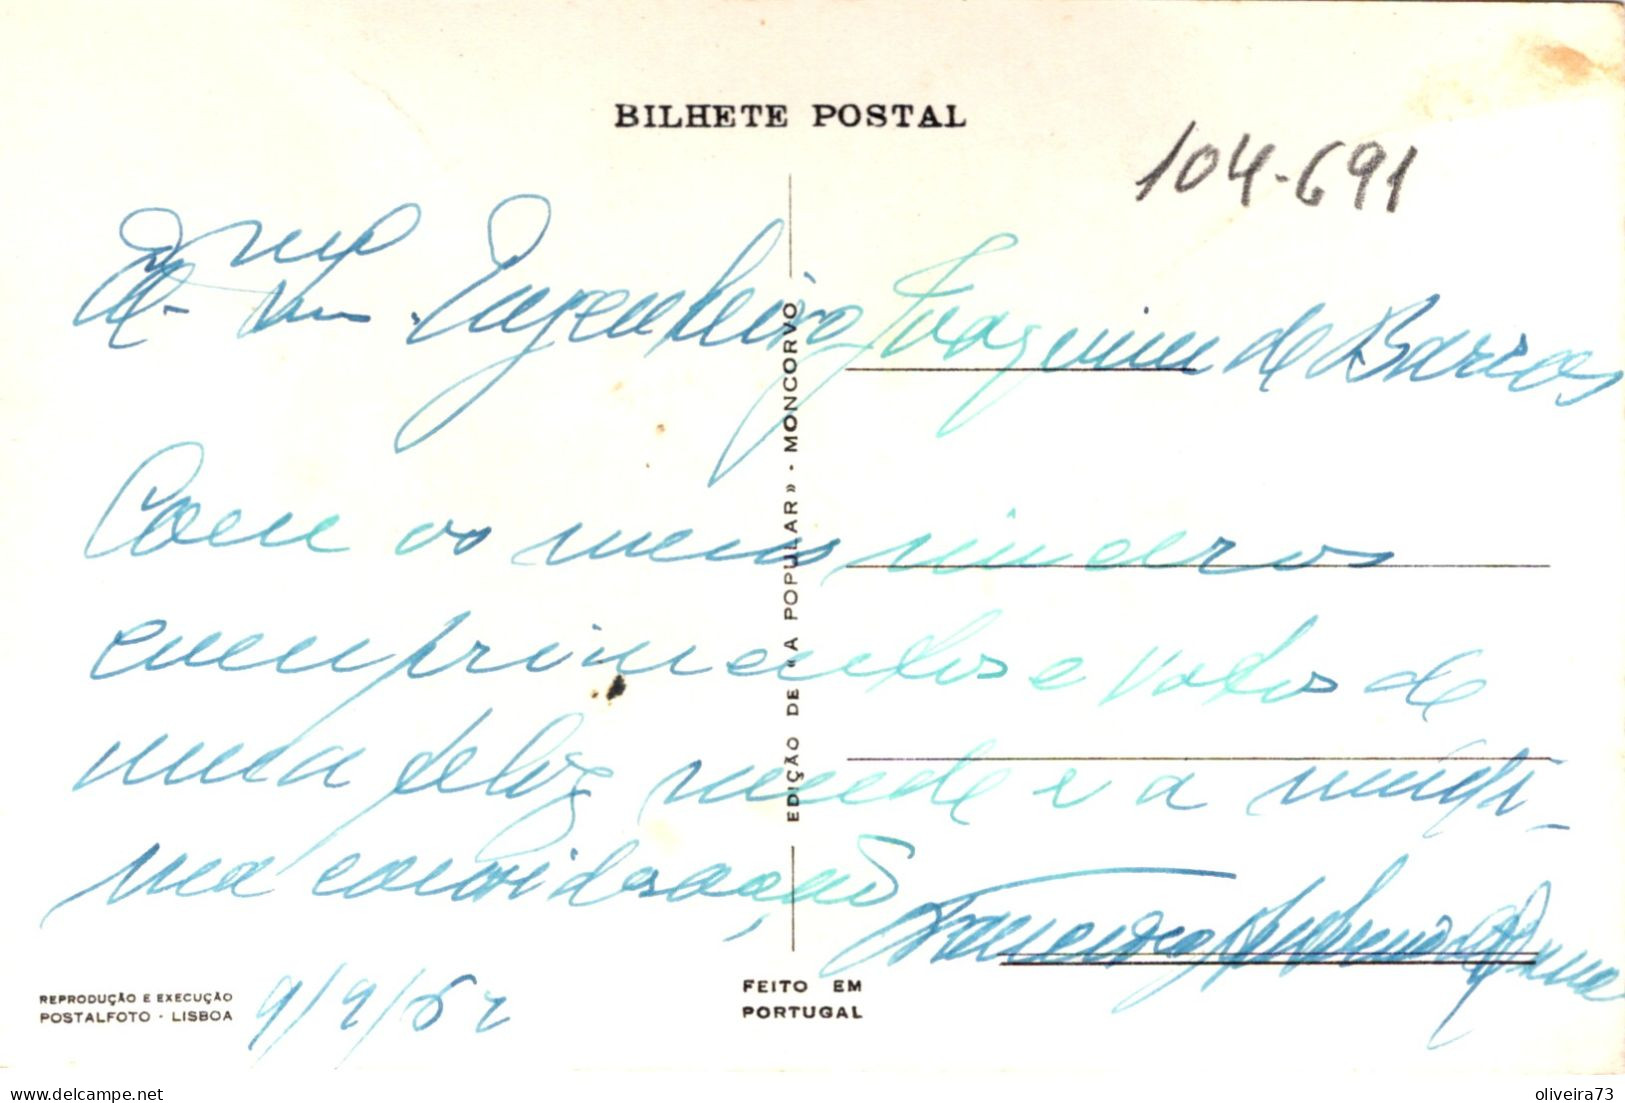 BILHETE POSTAL
104-691
Exmo
Sr. Engenheiro Joaquim de Barros
Com os meus sinceros
cumprimentos e votos de
uma feliz saude e a maxi-
ma consideração
Francisco
9/9/62
EDIÇÃO DE «A POPULAR» - MONCORVO
REPRODUÇÃO E EXECUÇÃO
POSTALFOTO · LISBOA
FEITO EM
PORTUGAL
delcampe.net
oliveira73